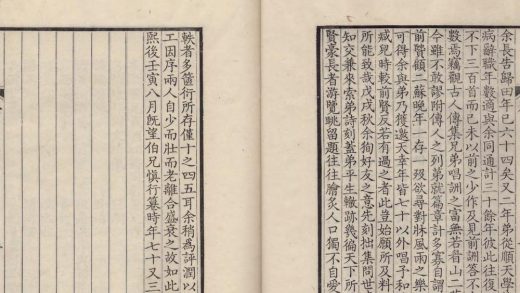 余長告歸田年已六十四矣又二年弟從順天學
病辭職年數適與余同通計三十餘年彼此往復
不下三百首而己未以前之少作及見前詶答不
數焉竊觀古人傳集兄弟唱詶之富無若眉山二
今雖不敢謬附傳人之列弟就篇章計多寡自謂
前賢顧二蘇晚年一存一歿欲尋對牀風雨之樂
可得余與弟乃獲邀天幸年皆七十以外唱子和
臧兒時較前賢反若有過之者此豈始願所及料
所能致哉戊戌秋余徇好友之意先刻拙集問世
知交兼來索弟詩刻蓋弟平生轍跡幾徧天下所
賢豪長者游覽眺留題往往膾炙人口獨不自愛
軼者多篋衍所存僅十之四五耳余稍為評潤以
工因序兩人自少而壯而老離合盛衰之故如此
熙後壬寅八月既望伯兄慎行篹時年七十又三